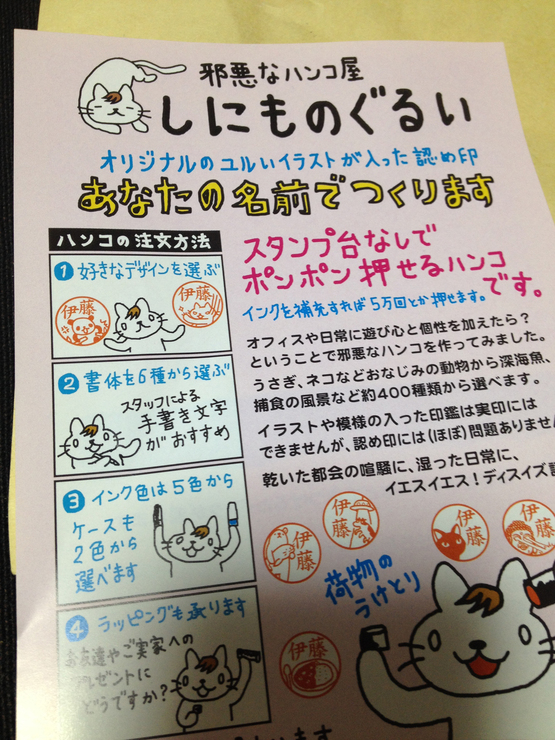 邪悪なハンコ屋
しにものぐるい
オリジナルのユルいイラストが入った認め印
あなたの名前でつくります
ハンコの注文方法
1 好きなデザインを選ぶ
伊藤
伊藤
2 書体を6種から選ぶ
スタッフによる
手書き文字
がおすすめ
3 インク色は5色から
ケースも
2色から
選べます
4 ラッピングも承ります
お友達やご実家への
プレゼントに
どうですか?
スタンプ台なしで
ポンポン押せるハンコ
です。
インクを補充すれば5万回とか押せます。
オフィスや日常に遊び心と個性を加えたら?
ということで邪悪なハンコを作ってみました。
うさぎ、ネコなどおなじみの動物から深海魚、
捕食の風景など約400種類から選べます。
イラストや模様の入った印鑑は実印には
できませんが、認め印には(ほぼ)問題ありませ
乾いた都会の喧騒に、湿った日常に、
イエスイエス!ディスイズ
伊藤
伊藤
伊藤
伊藤
荷物の
うけとり
伊藤